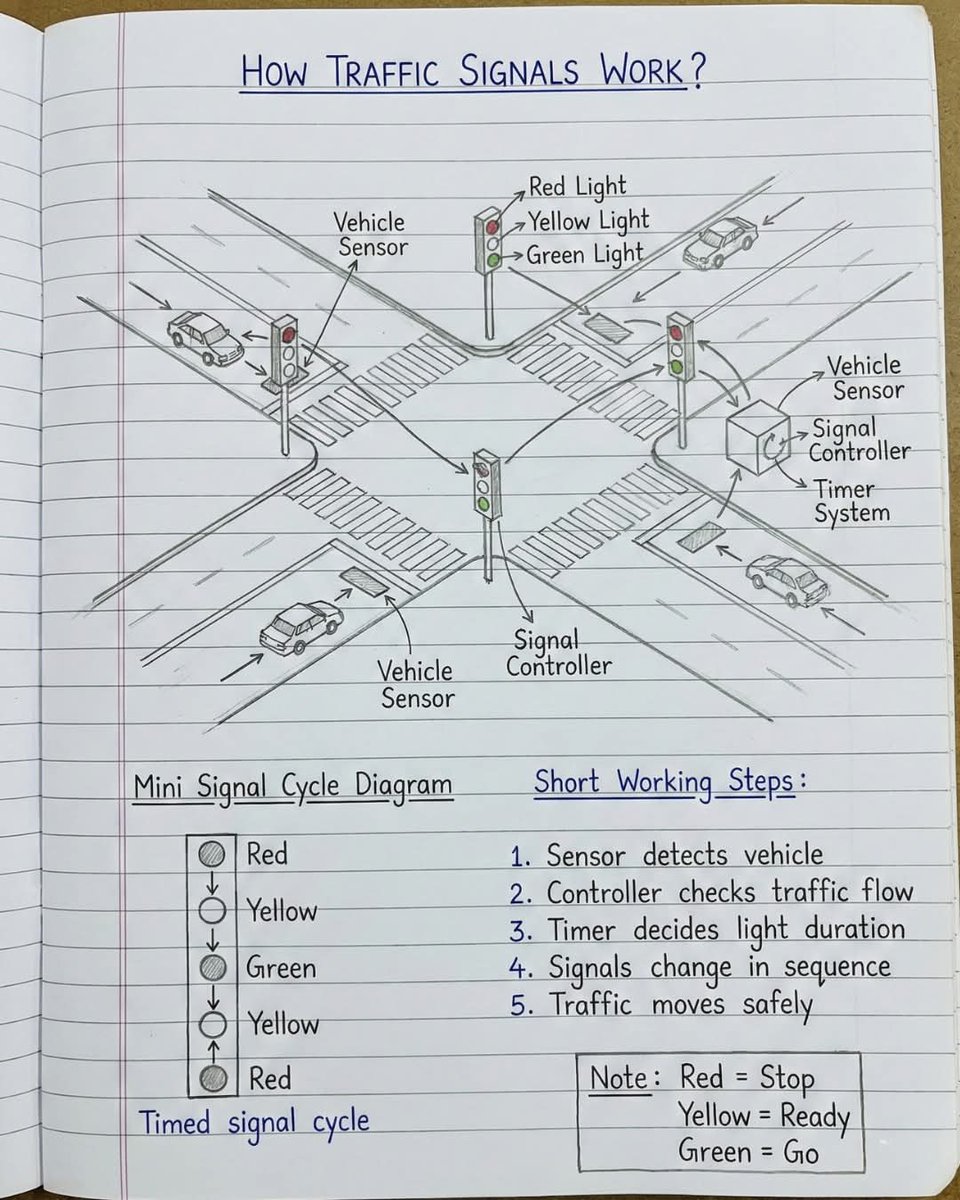 How Traffic Signals Work?
Red Light
Yellow Light
Green Light
Vehicle
Sensor
Vehicle
Sensor
Signal
Controller
Timer
System
Signal
Controller
Vehicle
Sensor
Mini Signal Cycle Diagram
Red
Yellow
Green
Yellow
Red
Timed signal cycle
Short Working Steps:
1. Sensor detects vehicle
2. Controller checks traffic flow
3. Timer decides light duration
4. Signals change in sequence
5. Traffic moves safely
Note: Red = Stop
Yellow = Ready
Green = Go